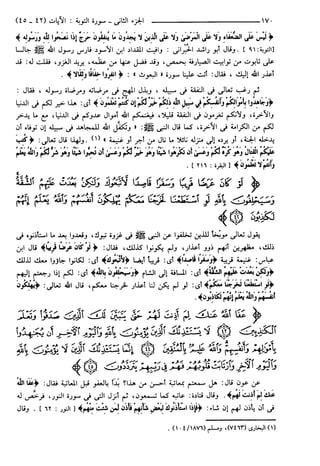 ١٧٠ الجزء الثانى - سورة التوبة : الآيات (٤٢ - ٤٥)
﴿ لَيْسَ عَلَى الضُّعَفَاءِ وَلَا عَلَى الْمَرْضَىٰ وَلَا عَلَى الَّذِينَ لَا يَجِدُونَ مَا يُنفِقُونَ حَرَجٌ إِذَا نَصَحُوا لِلَّهِ وَرَسُولِهِ ﴾
[التوبة : ٩١] . وقال أبو راشد الحبرانى : وافيت المقداد ابن الأسود فارس رسول الله ﷺ جالسا
على تابوت من توابيت الصيارفة بحمص، وقد فضل عنها من عظمه، يريد الغزو، فقلت له : قد
أعذر الله إليك ، فقال : أتت علينا سورة « البعوث » : ﴿ انفِرُوا خِفَافًا وَثِقَالًا ﴾ .
ثم رغب تعالى فى النفقة فى سبيله ، وبذل المهج فى مرضاته ومرضاة رسوله ، فقال :
﴿ وَجَاهِدُوا بِأَمْوَالِكُمْ وَأَنفُسِكُمْ فِي سَبِيلِ اللَّهِ ذَٰلِكُمْ خَيْرٌ لَّكُمْ إِن كُنتُمْ تَعْلَمُونَ ﴾ أى : هذا خير لكم فى الدنيا
والآخرة، ولأنكم تغرمون فى النفقة قليلا، فيغنمكم الله أموال عدوكم فى الدنيا، مع ما يدخر
لكم من الكرامة فى الآخرة، كما قال النبى ﷺ : « وتكفَّل الله للمجاهد فى سبيله إن توفاه أن
يدخله الجنة ، أو يرده إلى منزله نائلا ما نال من أجر أو غنيمة » (١) . ولهذا قال تعالى: ﴿ كُتِبَ
عَلَيْكُمُ الْقِتَالُ وَهُوَ كُرْهٌ لَّكُمْ وَعَسَىٰ أَن تَكْرَهُوا شَيْئًا وَهُوَ خَيْرٌ لَّكُمْ وَعَسَىٰ أَن تُحِبُّوا شَيْئًا وَهُوَ شَرٌّ لَّكُمْ وَاللَّهُ يَعْلَمُ
وَأَنتُمْ لَا تَعْلَمُونَ ﴾ [البقرة : ٢١٦] .
﴿ لَوْ كَانَ عَرَضًا قَرِيبًا وَسَفَرًا قَاصِدًا لَّاتَّبَعُوكَ وَلَٰكِن بَعُدَتْ عَلَيْهِمُ الشُّقَّةُ
وَسَيَحْلِفُونَ بِاللَّهِ لَوِ اسْتَطَعْنَا لَخَرَجْنَا مَعَكُمْ يُهْلِكُونَ أَنفُسَهُمْ وَاللَّهُ يَعْلَمُ إِنَّهُمْ
لَكَاذِبُونَ ﴾
يقول تعالى موبِّخًا للذين تخلفوا عن النبى ﷺ فى غزوة تبوك، وقعدوا بعد ما استأذنوه فى
ذلك، مظهرين أنهم ذوو أعذار، ولم يكونوا كذلك، فقال : ﴿ لَوْ كَانَ عَرَضًا قَرِيبًا ﴾ قال ابن
عباس: غنيمة قريبة ﴿ وَسَفَرًا قَاصِدًا ﴾ أى: قريبا أيضا ﴿ لَّاتَّبَعُوكَ ﴾ أى: لكانوا جاؤوا معك لذلك
﴿ وَلَٰكِن بَعُدَتْ عَلَيْهِمُ الشُّقَّةُ ﴾ أى: المسافة إلى الشام ﴿ وَسَيَحْلِفُونَ بِاللَّهِ ﴾ أى: لكم إذا رجعتم إليهم
﴿ لَوِ اسْتَطَعْنَا لَخَرَجْنَا مَعَكُمْ ﴾ أى : لو لم يكن لنا أعذار لخرجنا معكم، قال الله تعالى: ﴿ يُهْلِكُونَ
أَنفُسَهُمْ وَاللَّهُ يَعْلَمُ إِنَّهُمْ لَكَاذِبُونَ ﴾ .
﴿ عَفَا اللَّهُ عَنكَ لِمَ أَذِنتَ لَهُمْ حَتَّىٰ يَتَبَيَّنَ لَكَ الَّذِينَ صَدَقُوا وَتَعْلَمَ
الْكَاذِبِينَ لَا يَسْتَأْذِنُكَ الَّذِينَ يُؤْمِنُونَ بِاللَّهِ وَالْيَوْمِ الْآخِرِ أَن يُجَاهِدُوا
بِأَمْوَالِهِمْ وَأَنفُسِهِمْ وَاللَّهُ عَلِيمٌ بِالْمُتَّقِينَ إِنَّمَا يَسْتَأْذِنُكَ الَّذِينَ لَا يُؤْمِنُونَ
بِاللَّهِ وَالْيَوْمِ الْآخِرِ وَارْتَابَتْ قُلُوبُهُمْ فَهُمْ فِي رَيْبِهِمْ يَتَرَدَّدُونَ ﴾
عن عون قال: هل سمعتم بمعاتبة أحسن من هذا؟ بَدَأ بالعفو قبل المعاتبة فقال: ﴿ عَفَا اللَّهُ
عَنكَ لِمَ أَذِنتَ لَهُمْ ﴾. وقال قتادة: عاتبه كما تسمعون، ثم أنزل التى فى سورة النور، فرخَّص له
فى أن يأذن لهم إن شاء: ﴿ فَإِذَا اسْتَأْذَنُوكَ لِبَعْضِ شَأْنِهِمْ فَأْذَن لِّمَن شِئْتَ مِنْهُمْ ﴾ [النور : ٦٢] . وقال
(١) البخارى (٧٤٦٣)، ومسلم (١٨٧٦ / ١٠٤) .